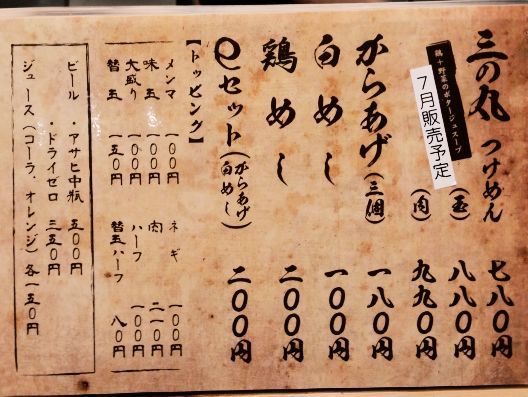 三の丸 つけめん 七八〇円
鶏+野菜のポタージュスープ
(玉) 八八〇円
7月販売予定
(肉) 九九〇円
からあげ(三個) 一八〇円
白めし 一〇〇円
鶏めし 二〇〇円
eセット(からあげ 白めし) 二〇〇円
【トッピング】
メンマ 一〇〇円 ネギ 一〇〇円
味玉 一〇〇円 肉 二一〇円
大盛り 一〇〇円 ハーフ 一〇〇円
替玉 一五〇円 替玉ハーフ 八〇円
ビール ・アサヒ中瓶 五〇〇円
・ドライゼロ 三五〇円
ジュース(コーラ・オレンジ)各一五〇円